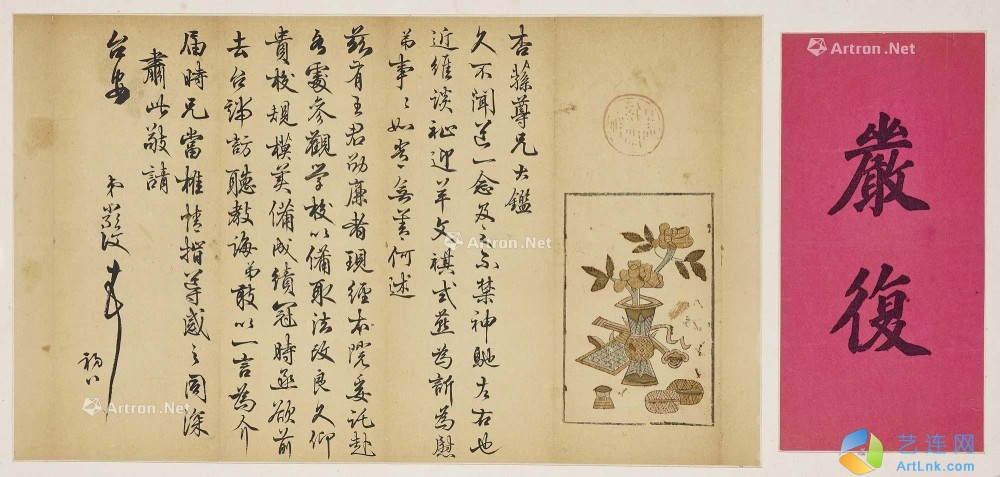 杏蓀尊兄大鑑
久不聞道一念及之不禁神馳左右也
近維談祉迎羊文祺式燕為訢為慰
弟事々如常無善何述
茲有王君劭廉者現經本院委託赴
各處參觀学校以備取法改良久仰
貴校規模美備成績冠時亟欲前
去台端訪聽教誨弟敢以一言為介
屆時兄當推情指導感之同深
肅此敬請
台安
弟嚴復
初八
嚴復
Artron.Net
Artron.Net
Artron.Net
Artron.Net
艺连网
ArtLnk.com